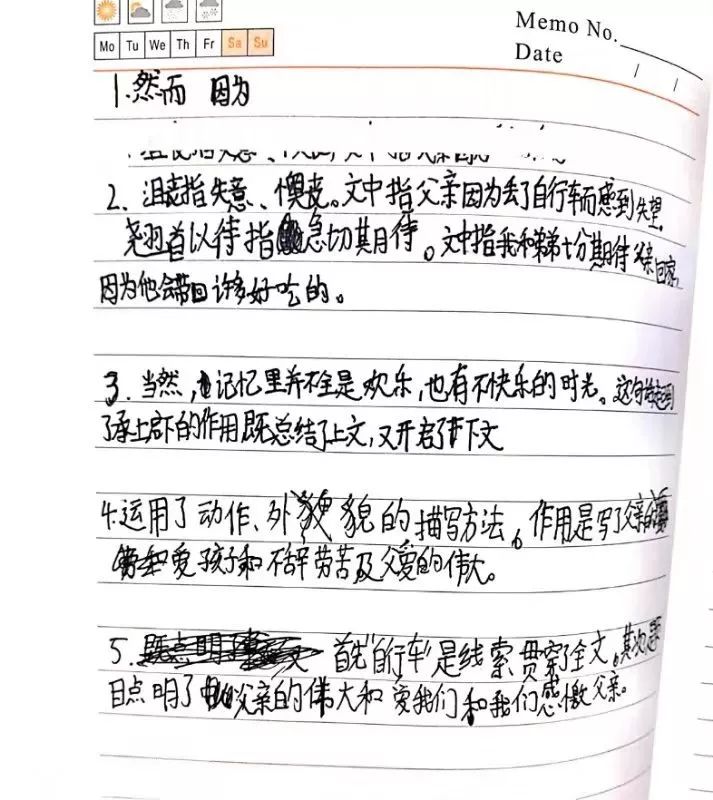 Memo No.
Mo Tu We Th Fr Sa Su
Date
1.然而 因为
2、沮丧指失意、懊丧。文中指父亲因为丢了自行车而感到失望。
翘首以待指急切期待。文中指我和弟弟十分期待父亲回家,
因为他会带回许多好吃的。
3、当然,记忆里并不全是欢乐,也有不快乐的时光。这句话起到
了承上启下的作用既总结了上文,又开启了下文
4.运用了动作、外貌的描写方法。作用是写了父亲的
爱孩子和不辞劳苦及父爱的伟大。
5.首先"自行车"是线索贯穿了全文。其次题
目点明了父亲的伟大和爱我们和我们感激父亲。